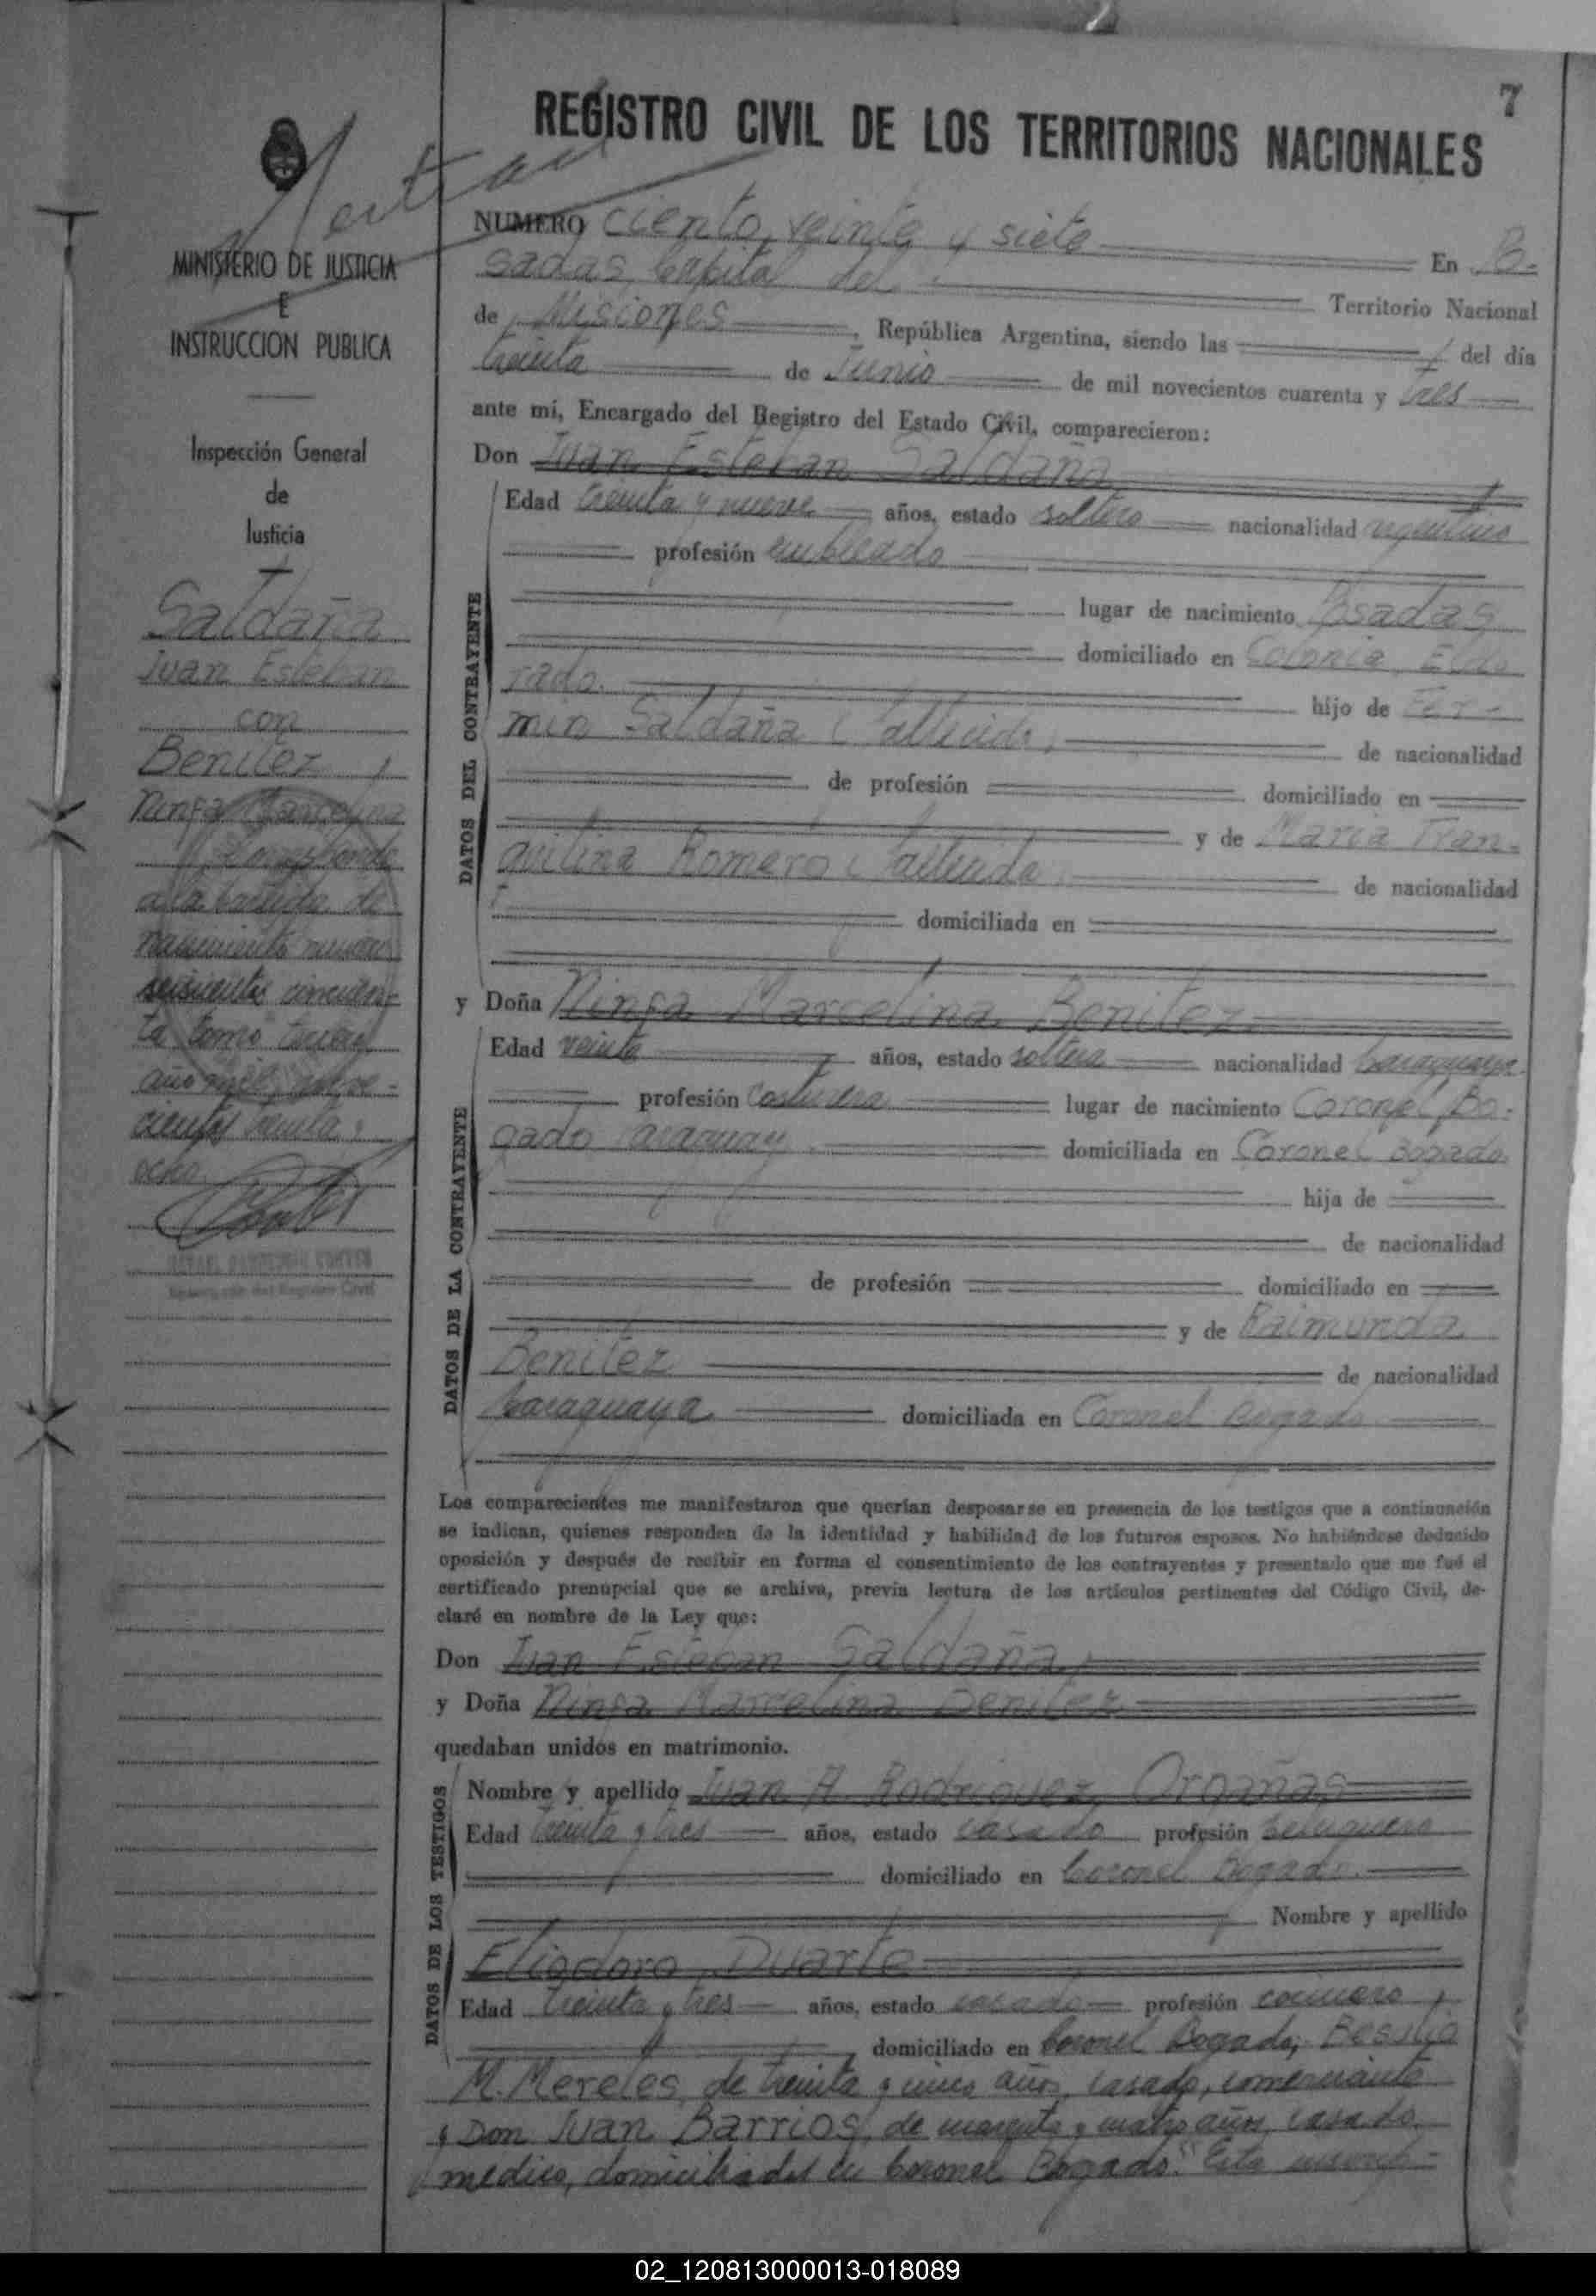 7
REGISTRO CIVIL DE LOS TERRITORIOS NACIONALES
MINISTERIO DE JUSTICIA
E
INSTRUCCION PUBLICA
Inspección General
de
Justicia
Saldaña
Juan Esteban
con
Benitez
Ninfa Marcelina
Corresponde
a la partida de
nacimiento numero
seiscientos cincuen-
ta tomo
año mil nove-
cientos treinta y
ocho
NUMERO ciento veinte y siete En Po-
sadas Capital del Territorio Nacional
de Misiones, República Argentina, siendo las del día
treinta de Junio de mil novecientos cuarenta y tres
ante mí, Encargado del Registro del Estado Civil, comparecieron:
Don Juan Esteban Saldaña
DATOS DEL CONTRAYENTE
Edad treinta y nueve años, estado soltero nacionalidad argentino
profesión empleado
lugar de nacimiento Posadas
domiciliado en Colonia Eldo
rado. hijo de Fer-
min Saldaña (fallecido) de nacionalidad
de profesión domiciliado en
y de Maria Tran-
quilina Romero (fallecida) de nacionalidad
domiciliada en
y Doña Ninfa Marcelina Benitez
DATOS DE LA CONTRAYENTE
Edad veinte años, estado soltera nacionalidad paraguaya
profesión Costurera lugar de nacimiento Coronel Bo-
gado Paraguay domiciliada en Coronel Bogado
hija de
de nacionalidad
de profesión domiciliado en
y de Raimunda
Benitez de nacionalidad
paraguaya domiciliada en Coronel Bogado
Los comparecientes me manifestaron que querían desposarse en presencia de los testigos que a continuación
se indican, quienes responden de la identidad y habilidad de los futuros esposos. No habiéndose deducido
oposición y después de recibir en forma el consentimiento de los contrayentes y presentado que me fué el
certificado prenupcial que se archiva, previa lectura de los artículos pertinentes del Código Civil, de-
claré en nombre de la Ley que:
Don Juan Esteban Saldaña
y Doña Ninfa Marcelina Benitez
quedaban unidos en matrimonio.
DATOS DE LOS TESTIGOS
Nombre y apellido Juan A. Rodriguez
Edad treinta y tres años, estado casado profesión peluquero
domiciliado en Coronel Bogado.
Nombre y apellido
Eliodoro Duarte
Edad treinta y tres años, estado casado profesión cocinero
domiciliado en Coronel Bogado;
M. Mereles, de treinta y cinco años, casado, comerciante
y Don Juan Barrios, de cuarenta y cuatro años, casado
medico, domiciliados en Coronel Bogado." Esta inscrip-
02_120813000013-018089